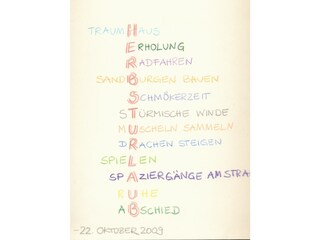 TRAUMHAUS
ERHOLUNG
RADFAHREN
SANDBURGEN BAUEN
SCHMÖKERZEIT
STÜRMISCHE WINDE
MUSCHELN SAMMELN
DRACHEN STEIGEN
SPIELEN
SPAZIERGÄNGE AM STRA
RUHE
ABSCHIED
-22. OKTOBER 2009